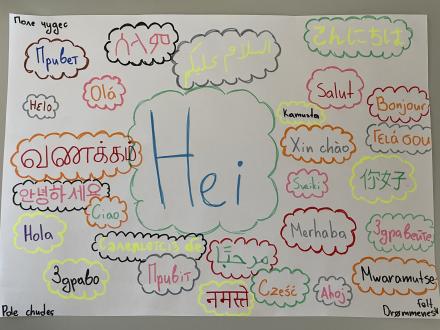 Поле чудес
Привет
ሰላም
السلام عليكم
こんにちは
Helo
Olá
Salut
Bonjour
Kamusta
வணக்கம்
Hei
Xin chào
Γειά σου
안녕하세요
Ciao
Sveiki
你好
Hola
Merhaba
Здравейте
Здраво
Привіт
مرحبًا
नमस्ते
Cześć
Ahoj
Mwaramutse
Pole chudes